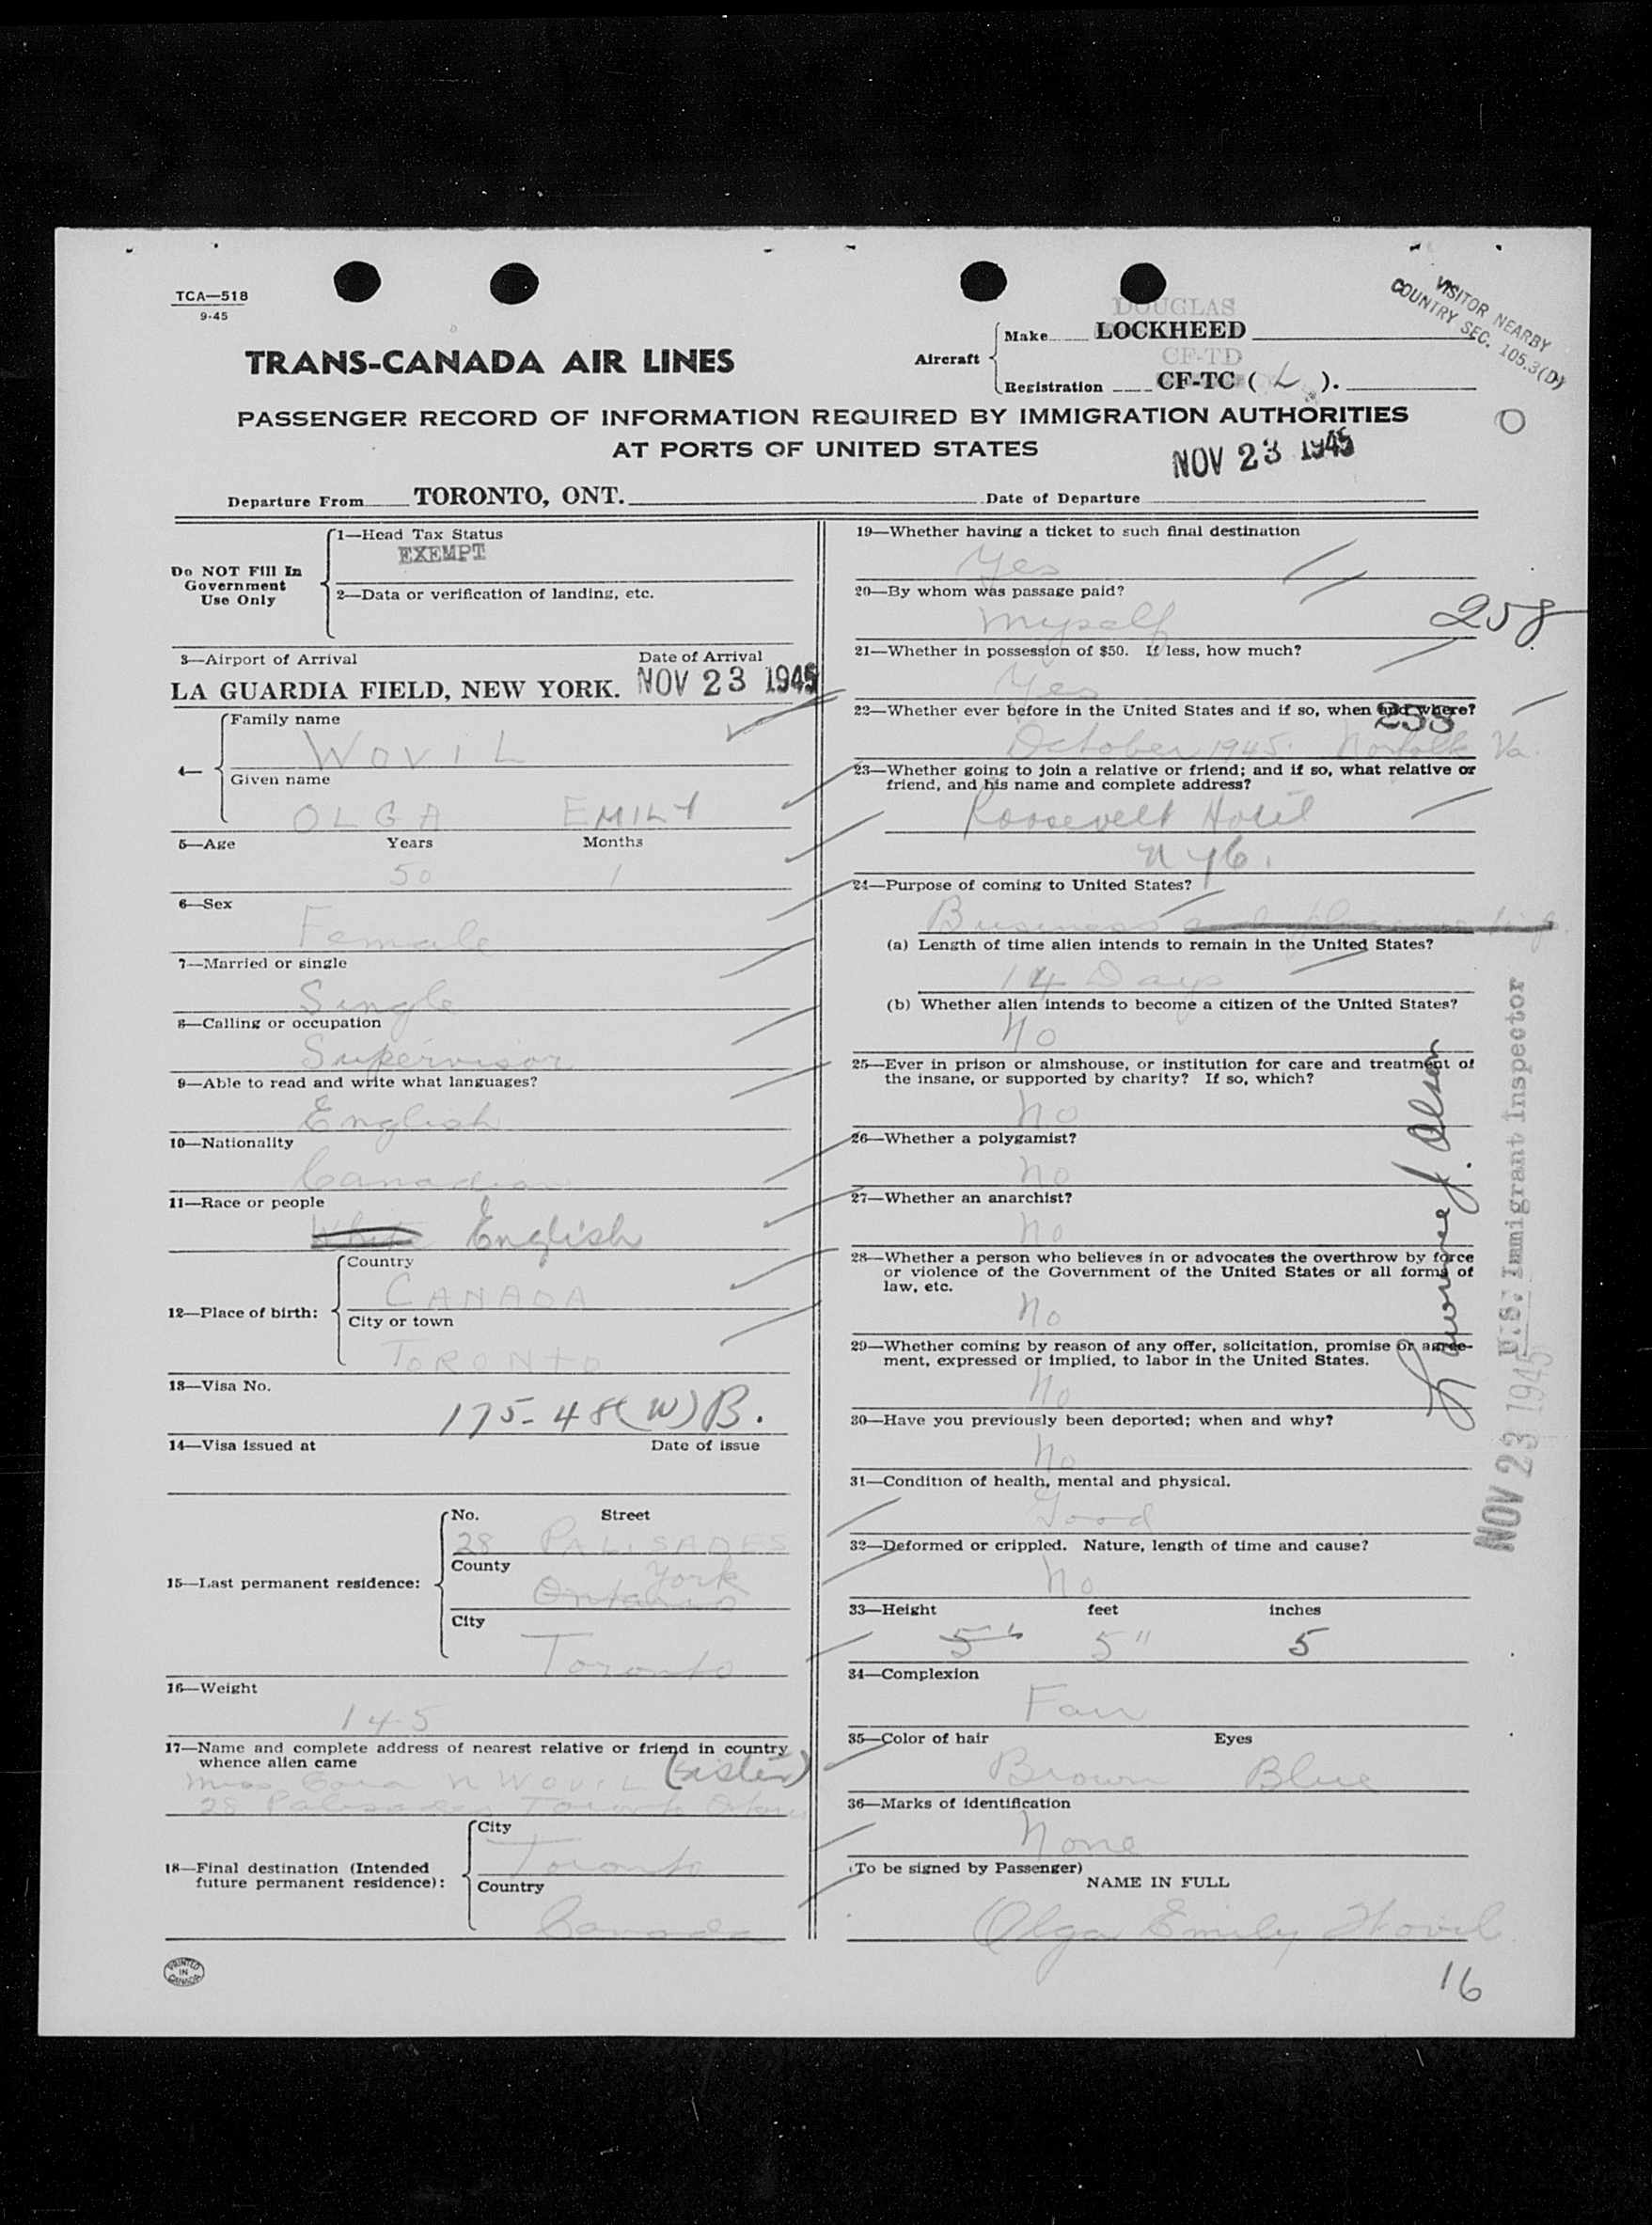 TCA—518
9-45
VISITOR NEARBY
COUNTRY SEC. 105.3(D)
TRANS-CANADA AIR LINES
Aircraft
DOUGLAS
Make LOCKHEED
CF-TD
Registration CF-TC ( L ).
PASSENGER RECORD OF INFORMATION REQUIRED BY IMMIGRATION AUTHORITIES
AT PORTS OF UNITED STATES
NOV 23 1945
Departure From TORONTO, ONT. Date of Departure
Do NOT Fill In
Government
Use Only
1—Head Tax Status
EXEMPT
2—Data or verification of landing, etc.
3—Airport of Arrival Date of Arrival
LA GUARDIA FIELD, NEW YORK. NOV 23 1945
4—
Family name
WOVIL
Given name
OLGA EMILY
5—Age Years Months
50 1
6—Sex
Female
7—Married or single
Single
8—Calling or occupation
Supervisor
9—Able to read and write what languages?
English
10—Nationality
Canadian
11—Race or people
White English
12—Place of birth:
Country
CANADA
City or town
TORONTO
13—Visa No.
175-48(W)B.
14—Visa issued at Date of issue
15—Last permanent residence:
No. Street
28 PALISADES
County
York
Ontario
City
Toronto
16—Weight
145
17—Name and complete address of nearest relative or friend in country
whence alien came
Miss N WOVIL (sister)
28 Palisades Toronto
18—Final destination (Intended
future permanent residence):
City
Toronto
Country
Canada
PRINTED
IN
CANADA
19—Whether having a ticket to such final destination
Yes
20—By whom was passage paid?
Myself
258
21—Whether in possession of $50. If less, how much?
Yes
22—Whether ever before in the United States and if so, when and where?
258
October 1945. Norfolk Va.
23—Whether going to join a relative or friend; and if so, what relative or
friend, and his name and complete address?
Roosevelt Hotel
NYC.
24—Purpose of coming to United States?
Business
(a) Length of time alien intends to remain in the United States?
14 Days
(b) Whether alien intends to become a citizen of the United States?
No
25—Ever in prison or almshouse, or institution for care and treatment of
the insane, or supported by charity? If so, which?
No
26—Whether a polygamist?
No
27—Whether an anarchist?
No
28—Whether a person who believes in or advocates the overthrow by force
or violence of the Government of the United States or all forms of
law, etc.
No
29—Whether coming by reason of any offer, solicitation, promise or agree-
ment, expressed or implied, to labor in the United States.
No
30—Have you previously been deported; when and why?
No
31—Condition of health, mental and physical.
Good
32—Deformed or crippled. Nature, length of time and cause?
No
33—Height feet inches
5' 5" 5
34—Complexion
Fair
35—Color of hair Eyes
Brown Blue
36—Marks of identification
None
(To be signed by Passenger)
NAME IN FULL
Olga Emily Wovil
16
Olson
U.S. Immigrant Inspector
NOV 23 1945